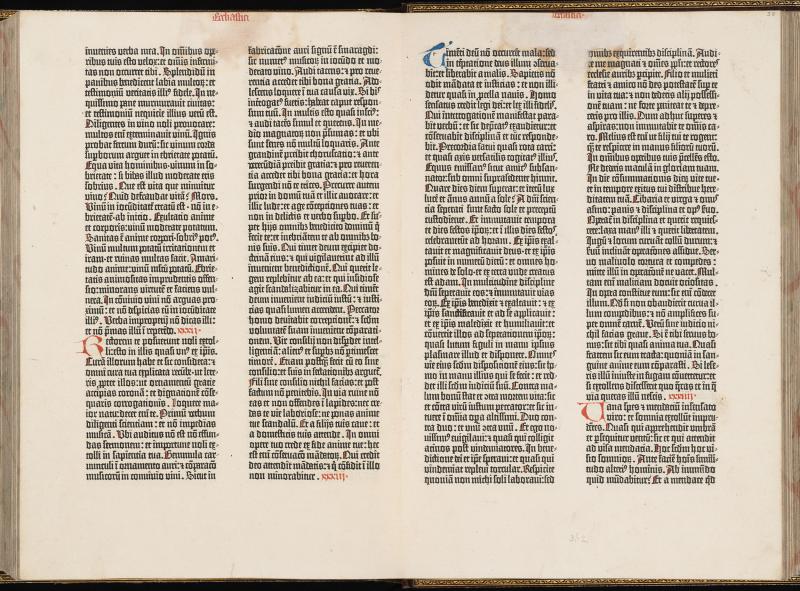 Ecclesiasti
inuenies verba mea. In omnibus ope-
ribus tuis esto velox: et omis infirmi-
tas non occurret tibi. Splendidū in
panibus benedicent labia multorū: et
testimoniū veritatis illiꝰ fidele. In ne-
quissimo pane murmurauit ciuitas:
et testimoniū nequicie illius verū est.
Diligentes in vino noli prouocare:
multos em̄ exterminauit vinū. Ignis
probat ferrum durū: sic vinum corda
supborum arguet in ebrietate potatū.
Equa vita hominibus vinum in so-
brietate: si bibas illud moderate eris
sobrius. Que est vita que minuitur
vino? Quid defraudat vitā? Mors.
Vinū in iocūditatē creatū est: nō in e-
brietatē ab inicio. Exultatio anime
et corporis: vinū moderate potatum.
Sanitas ē anime et corpori sobriꝰ potꝰ.
Vinū multum potatū irritationem et
iram et ruinas multas facit. Amari-
tudo anime: vinū multū potatū. Ebrie-
tatis animositas imprudentis offen-
sio: minorans virtutē et faciens vul-
nera. In cōuiuio vini nō arguas pro-
ximū: et nō despicias eū in iocūditate
illiꝰ. Verba improperij nō dicas illi:
et nō pmas illū ī repetēdo. xxxii.
Rectorem te posuerunt noli extol-
li: esto in illis quasi vnꝰ ex ipis.
Curā illorum habe et sic considera: et
omni cura tua explicita recūbe: ut lete-
ris ppter illos: ut ornamentū gracie
accipias coronā: et dignationē cōse-
quaris corrogationis. Loquere ma-
ior natu: decet em̄ te. Primū verbum
diligenti scientiam: et nō impedias
musicā. Ubi auditus nō est nō effun-
das sermonem: et importune noli ex-
tolli in sapientia tua. Gemmula car-
bunculi ī ornamento auri: et cōparatio
musicorū in conuiuio vini. Sicut in
fabricatione auri signū ē smaragdi:
sic numerꝰ musicorū in iocūdo et mo-
derato vino. Audi tacens: et pro reue-
rentia accedet tibi bona gratia. Ado-
lescens loquere ī tua causa vix. Si bis
interrogatꝰ fueris: habeat caput respon-
sum tuū. In multis esto quasi inscius:
et audi tacēs simul et querens. In me-
dio magnatorū non psumas: et ubi
sunt senes nō multū loquaris. Ante
grandinē preibit choruscatio: et ante
verecūdiā preibit gratia: et pro reueren-
tia accedet tibi bona gratia: et hora
surgendi nō te trices. Precurre autem
prior in domū tuā et illic auocare: et
illic lude: et age cōceptiones tuas: et
non in delictis et verbo supbo. Et su-
per hijs omnibꝰ benedicito dominū q̄
fecit te: et inebriātem te ab omnibꝰ bo-
nis suis. Qui timet deum excipiet do-
ctrinā eius: et qui vigilauerint ad illū
inuenient benedictionē. Qui querit le-
gem replebitur ab ea: et qui insidiose
agit scandalizabitur in ea. Qui timēt
deum inuenient iudiciū iustū: et iusti-
cias quasi lumen accendent. Peccator
homo deuitabit correptionē: et scdm̄
voluntatē suam inueniet cōparati-
onem. Vir consilij non disperdet intel-
ligentiā: alienꝰ et supbꝰ nō ptimescet ti-
morē. Etiam postq̄ fecit cū eo sine
consilio: et suis insectationibꝰ arguet̄.
Fili sine consilio nichil facias: et post
factum nō penitebis. In via ruine nō
eas et non offendes ī lapides: nec cre-
das te vie laboriose: ne ponas anime
tue scandalū. Et a filijs tuis caue: et
a domesticis tuis attende. In omni
opere tuo crede ex fide anime tue: hec
est em̄ cōseruatio mādatorū. Qui credit
deo attendit mādatis: et q̄ cōfidit ī illo
non minorabitur. xxxiii.
Timenti deū nō occurrent mala: sed
in temptatione deus illum cōserua-
bit: et liberabit a malis. Sapiens nō
odit mādata et iusticias: et non illi-
detur quasi in procella nauis. Homo
sensatus credit legi dei: et lex illi fidelis.
Qui interrogationē manifestat para-
bit verbū: et sic deprecatꝰ exaudietur: et
cōseruabit disciplinā et tūc responde-
bit. Precordia fatui quasi rota carri:
et quasi axis versatilis cogitatꝰ illius.
Equus emissariꝰ sicut amicꝰ subsan-
nator: sub omni suprasedente hinnit.
Quare dies diem superat: et iterū lux
lucē et annus annū a sole? A dn̄i scien-
tia separati sunt facto sole et preceptū
custodiente. Et immutauit tempora
et dies festos ipoꝝ: et ī illis dies festos
celebrauerūt ad horam. Ex ipis exal-
tauit et magnificauit deus: et ex ipis
posuit in numerū dierū: et omnes ho-
mines de solo et ex terra unde creatus
est adam. In multitudine discipline
dn̄s separauit eos: et immutauit vias
eorū. Ex ipis benedixit et exaltauit: et ex
ipis sanctificauit et ad se applicauit:
et ex ipis maledixit et humiliauit: et
cōuertit illos ad separationem ipoꝝ:
quasi lutum figuli in manu ipsius
plasmare illud et disponere. Omnes
vie eius scdm̄ dispositionē eius: sic ho-
mo in manu illius qui se fecit: et red-
det illi scdm̄ iudiciū suū. Contra ma-
lum bonū est et cōtra mortem vita: sic
et cōtra virū iustum peccator: et sic in-
tuere ī omnia opera altissimi. Duo con-
tra duo: et unū cōtra unū. Et ego no-
uissimꝰ euigilaui: et quasi qui colligit
acinos post vindemiatores. In bene-
dictione dei et ipe speraui: et quasi qui
vindemiat repleui torcular. Respicite
quoniā non michi soli laboraui: sed
omnibꝰ exquirentibꝰ disciplinā. Audi-
te me magnati et omēs ppli: et rectores
ecclesie auribꝰ percipite. Filio et mulieri
fratri et amico nō des potestatē sup te
in vita tua: et non dederis alij possessi-
onē tuam: ne forte peniteat te et depre-
ceris pro illis. Dum adhuc superes et
aspiras: non immutabit te omnis ca-
ro. Melius est em̄ ut filij tui te rogent:
q̄ te respicere in manus filiorū tuorū.
In omnibus operibus tuis pcellēs esto.
Ne dederis maculā in gloriam tuam.
In die cōsummationis dierū vite tue:
et in tempore exitus tui distribue here-
ditatem tuā. Cibaria et virga et onus
asino: panis et disciplina et opus suo.
Operat̄ in disciplina et querit requies-
cere: laxa manꝰ illi et querit libertatem.
Jugū et lorum curuant collū durum: et
suū inclināt operationes assidue. Ser-
uo maliuolo tortura et compedes:
mitte illū in operationē ne vacet. Mul-
tam em̄ maliciam docuit ociositas.
In opera constitue eum: sic em̄ cōdecet
illum. Qd̄ si non obaudierit curua il-
lum compedibus: et nō amplifices su-
per omnē carnē. Verū sine iudicio ni-
chil facias graue. Si ē tibi seruus fide-
lis: sit tibi quasi anima tua. Quasi
fratrem sic eum tracta: quoniā in san-
guine anime eum cōparasti. Si lese-
ris illū iniuste in fugam cōuertetur: et
si extollens discesserit quo queras et in q̄
via queras illū nescis. xxxiiii.
Vana spes et mendaciū insensato
viro: et somnia extollūt impru-
dētes. Quasi qui apprehendit umbrā
et psequitur ventū: sic et qui attendit
ad visa mendacia. Hoc scdm̄ hoc vi-
sio somniorꝰ. Ante faciē hoīs simili-
tudo alteriꝰ hominis. Ab immundo
quid mūdabitur? Et a mendace qd̄